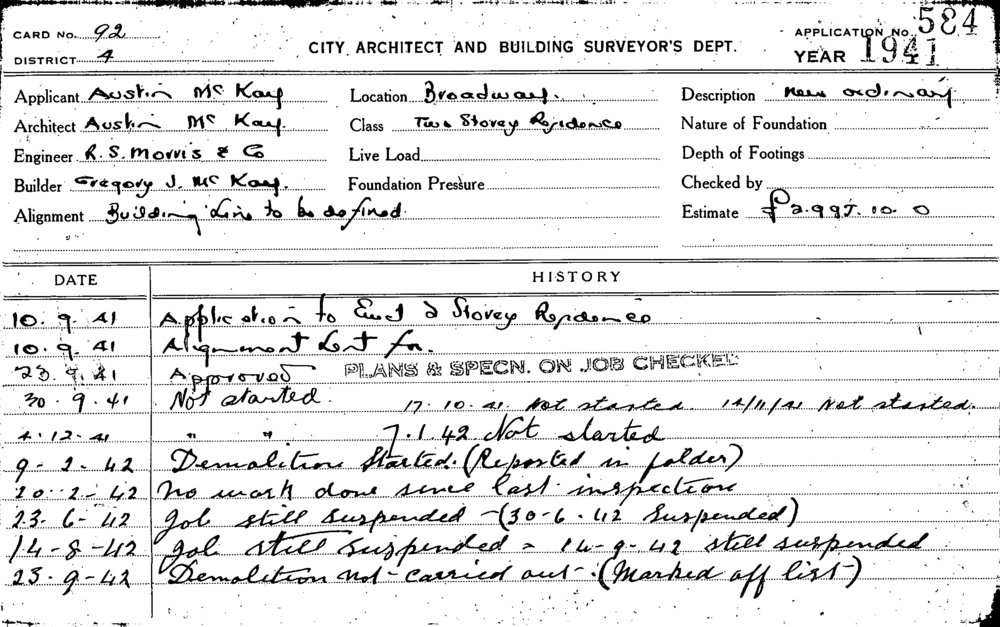 CARD No. 92
DISTRICT 4
CITY ARCHITECT AND BUILDING SURVEYOR'S DEPT.
APPLICATION No. 584
YEAR 1941
Applicant Austin McKay Location Broadway. Description new ordinary
Architect Austin McKay. Class Two Storey Residence Nature of Foundation
Engineer R. S. Morris & Co Live Load Depth of Footings
Builder Gregory J. McKay. Foundation Pressure Checked by
Alignment Building Line to be defined. Estimate £2.995.10.0
DATE HISTORY
10.9.41 Application to Erect 2 Storey Residence
10.9.41 Alignment Sent for.
23.9.41 Approved PLANS & SPECN. ON JOB CHECKED
30.9.41 Not started. 17.10.41 Not started. 14/11/41 Not started.
4.12.41 " " 7.1.42 Not started
9-2-42 Demolition Started. (Reported in folder)
20-2-42 No work done since last inspection
23-6-42 Job still suspended - (30-6-42 Suspended)
14-8-42 Job still suspended - 14-9-42 still suspended
23.9-42 Demolition not carried out. (Marked off list)